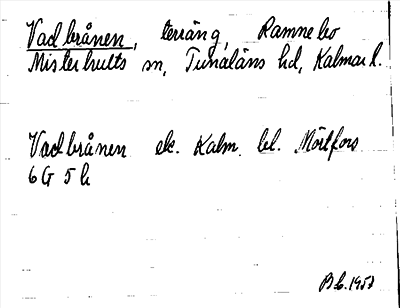 Vadbrånen, terräng, Ramnebo
Misterhults sn, Tunaläns hd, Kalmar l.
Vadbrånen ek. Kalm. bl. Mörtfors
6 G 5 h